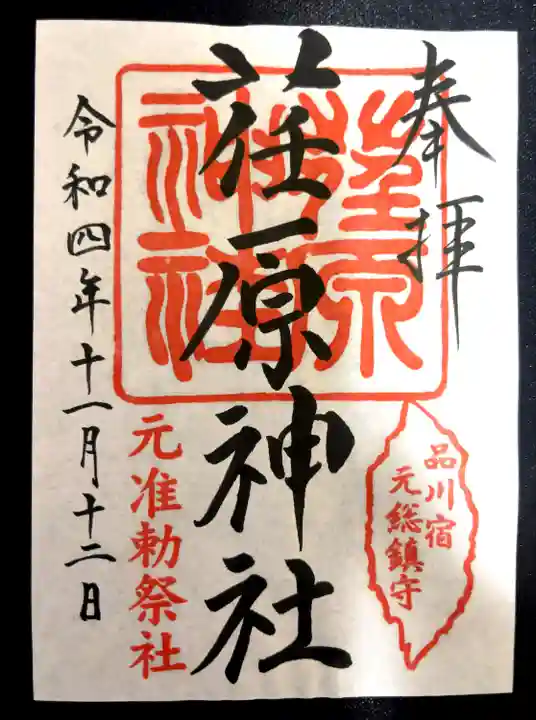 奉拝
品川宿
元総鎮守
荏原神社
荏原神社
元准勅祭社
令和四年十一月十二日